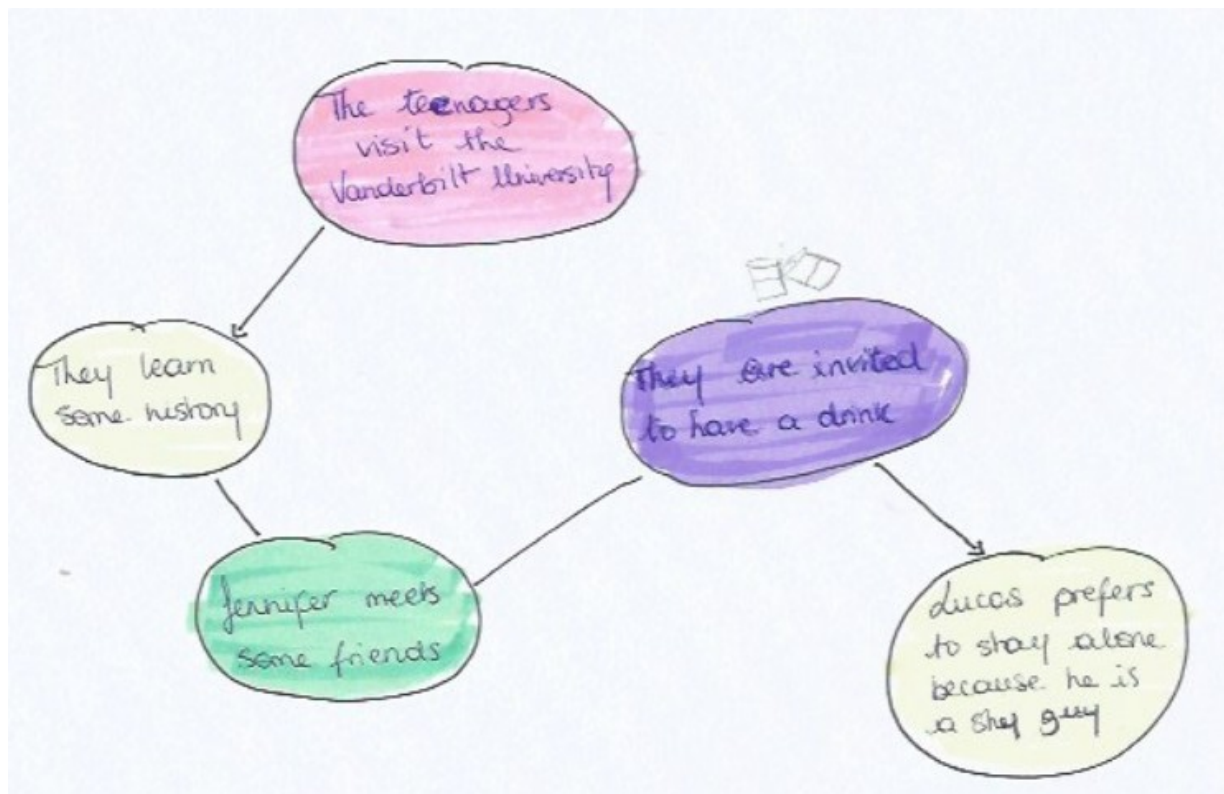 The teenagers
visit the
Vanderbilt University
They learn
some history
Jennifer meets
some friends
They are invited
to have a drink
Lucas prefers
to stay alone
because he is
a shy guy